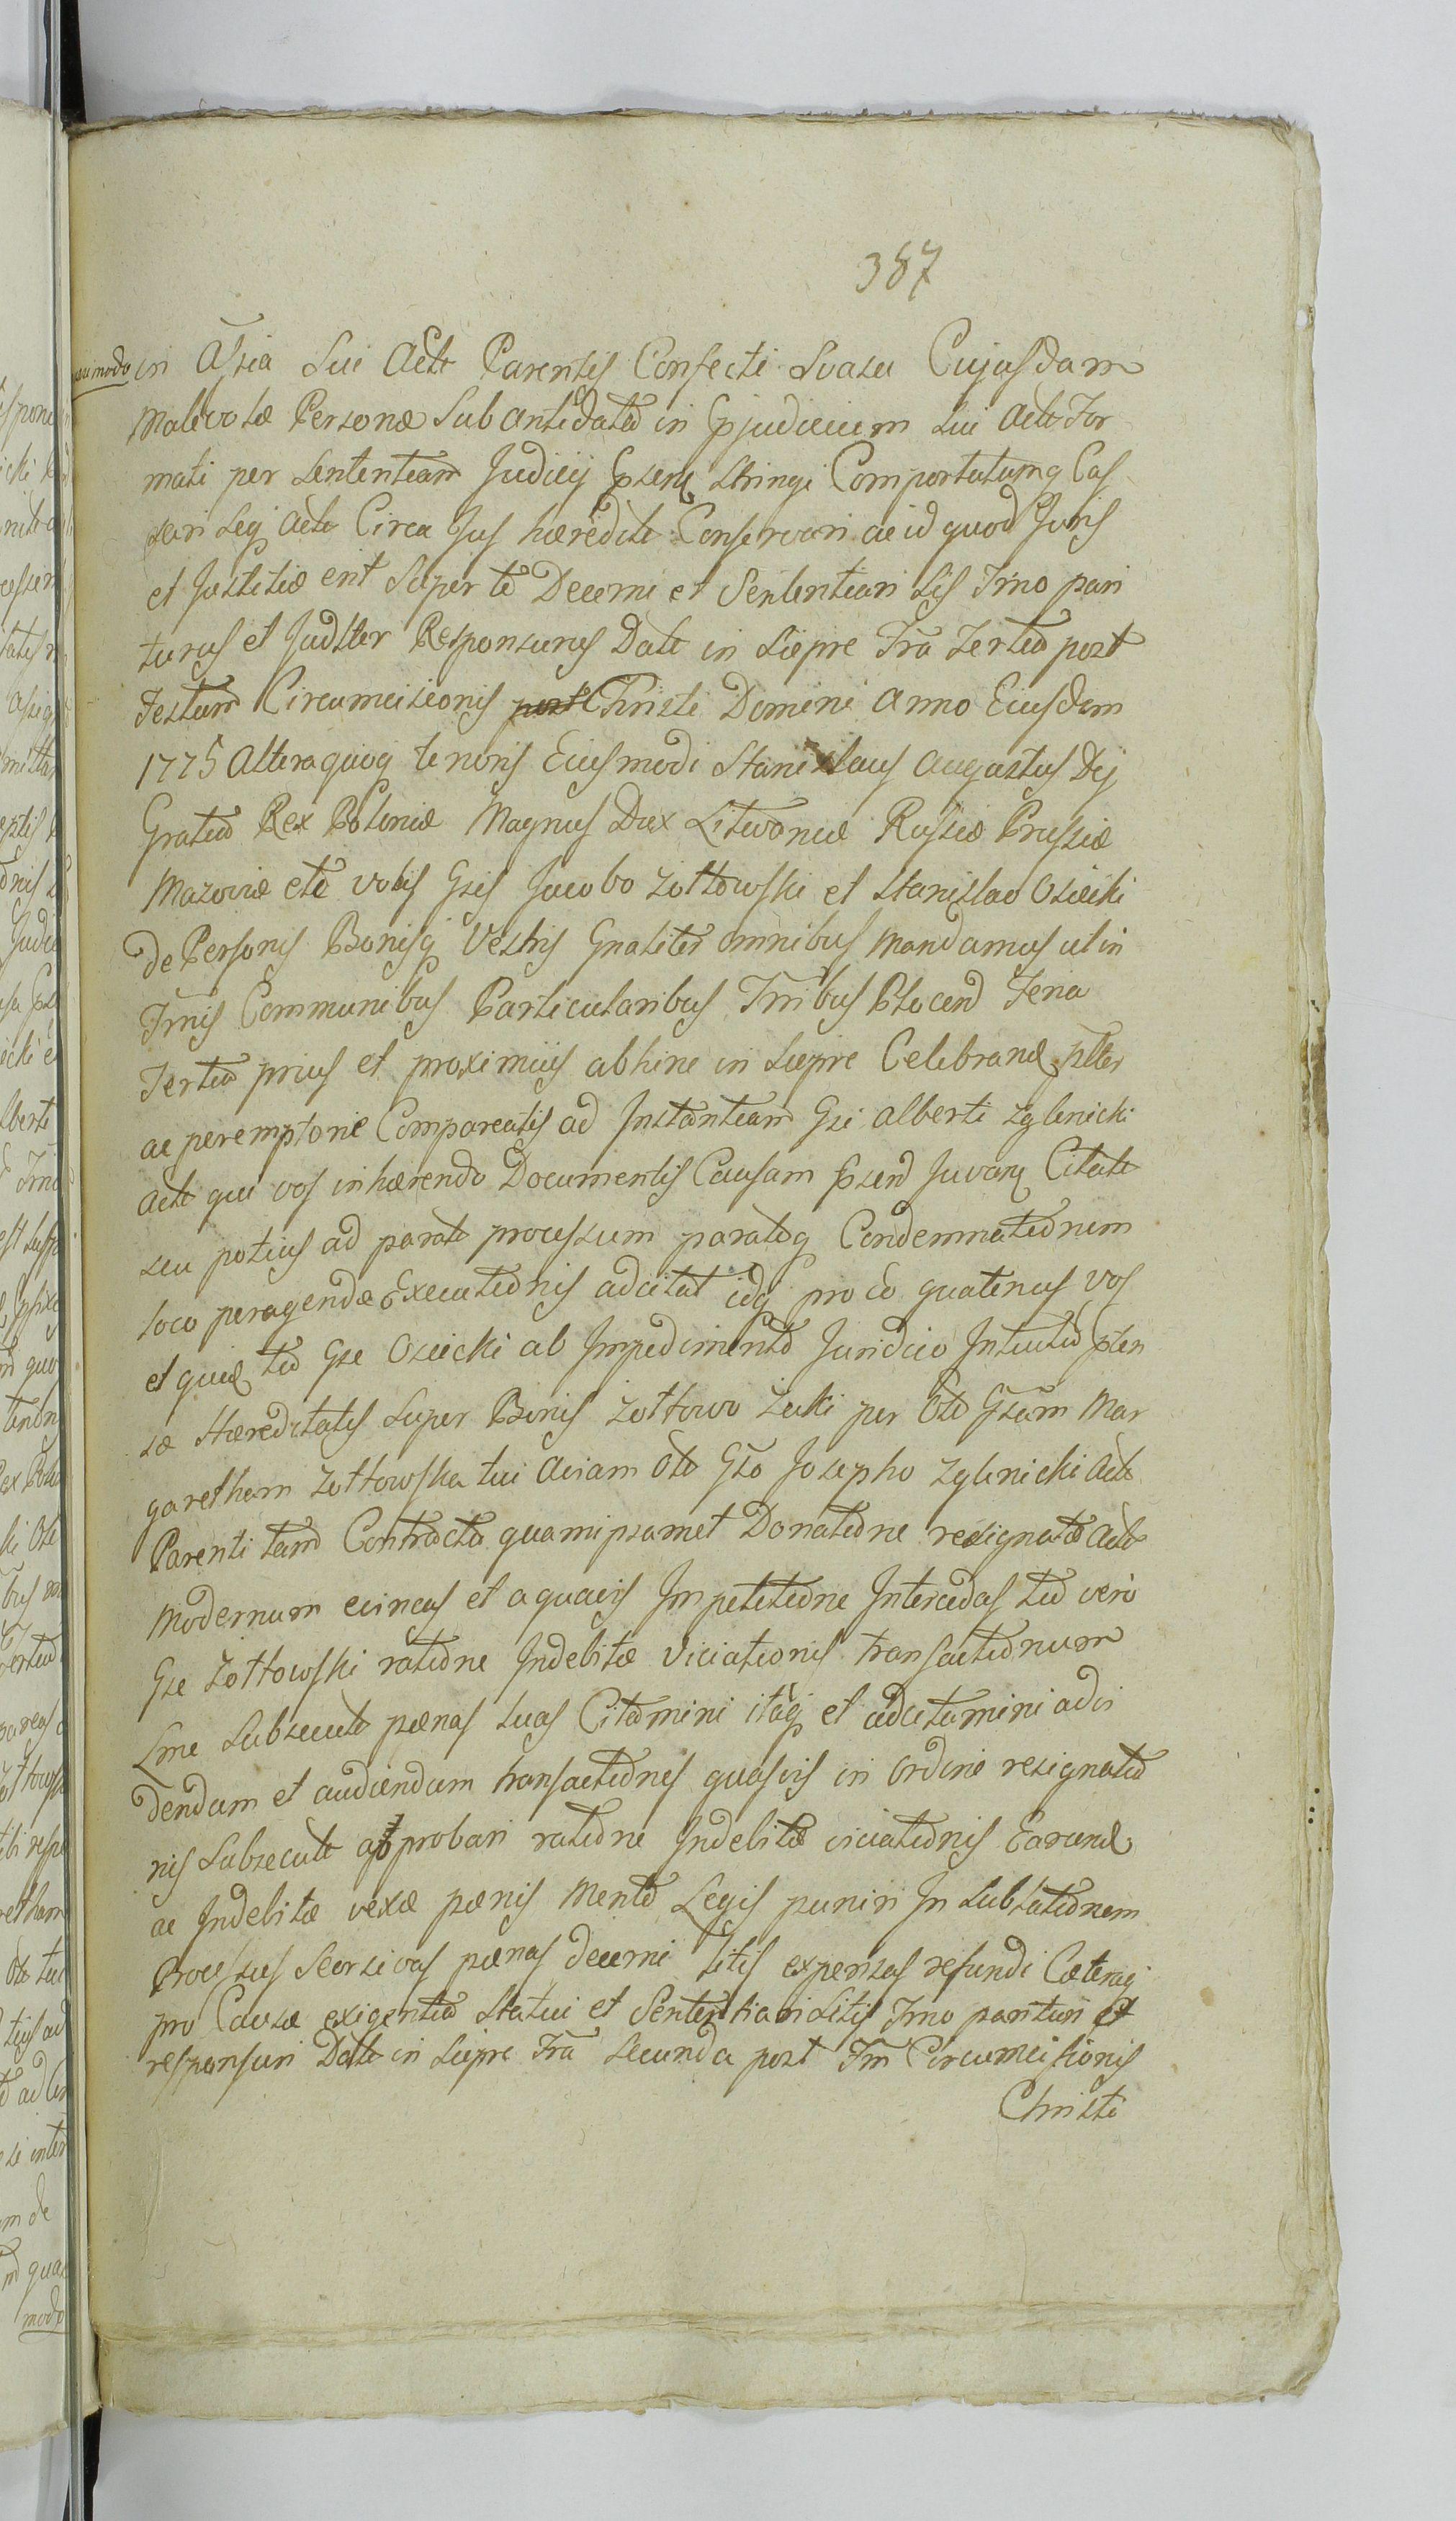 387
modo in Assia Sui Acte Parentis Confecti Svasu Cujusdam
Malevolæ Personæ Sub antidata in Ppjudicium Sui Acte For
mati per Sententiam Judicij Ppsens Stringi Comportatumq Cas
sari Seq Acte Circa Jus hæredite Conservari ac id quod Juris
et Justitiæ erit Super te Decerni et Sententiari Lis Tmo pari
turus et Judlter Responsurus Date in Siepre Fra Tertia post
Festum Circumcisionis Christi Domini Anno Eiusdem
1775 Altera quoq tenoris Eiusmodi Stanislaus Augustus Dej
Gratia Rex Poloniæ Magnus Dux Litvaniæ Russiæ Prussiæ
Mazoviæ etc vobis Gsis Jacobo Zołtowski et Stanislao Osiecki
de Personis Bonisq Vestris Gnaliter omnibus Mandamus ut in
Tmis Communibus Particularibus Trribus Plocen Feria
Tertia prius et proximius abhinc in Siepre Celebrand plter
ac peremptorie Compareatis ad Instantiam Gsi Alberti Zglenicki
Acte qui vos inhærendo Documentis Causam Ppsen Juvan Citate
seu potius ad parate processum parateq Condemnationum
loco peragendæ Executionis adcitat idq pro eo quatenus vos
et quid tu Gse Osiecki ab Impedimento Juridico Intuitu Ppten
sæ Hæreditatis Super Bonis Zołtowo Żuki per Ole Gsam Mar
garetham Zołtowska tui Aviam Ole Gso Josepho Zglenicki Acte
Parenti tam Contractu quamipsamet Donatione resignato Acte
Modernum evincas et a quavis Impetitione Intercedas tu vero
Gse Zołtowski ratione Indebitæ Viciationis transactionum
Lme Subsecute pænas luas Citamini itaq et adcitamini ad vi
dendum et audiendum transactiones quasvis in Ordine resignatio
nis Subsecute approbari ratione Indebitæ viciationis Earund
ac Indebitæ vexæ pænis Mente Legis puniri In Sublationem
Processus Seorsivas pænas decerni Litis expensas refundi Cæteraq
pro Causæ exigentia Statui et Sententiari Litis Tmo parituri et
responsuri Date in Siepre Fra Secunda post Fm Circumcisionis
Christi